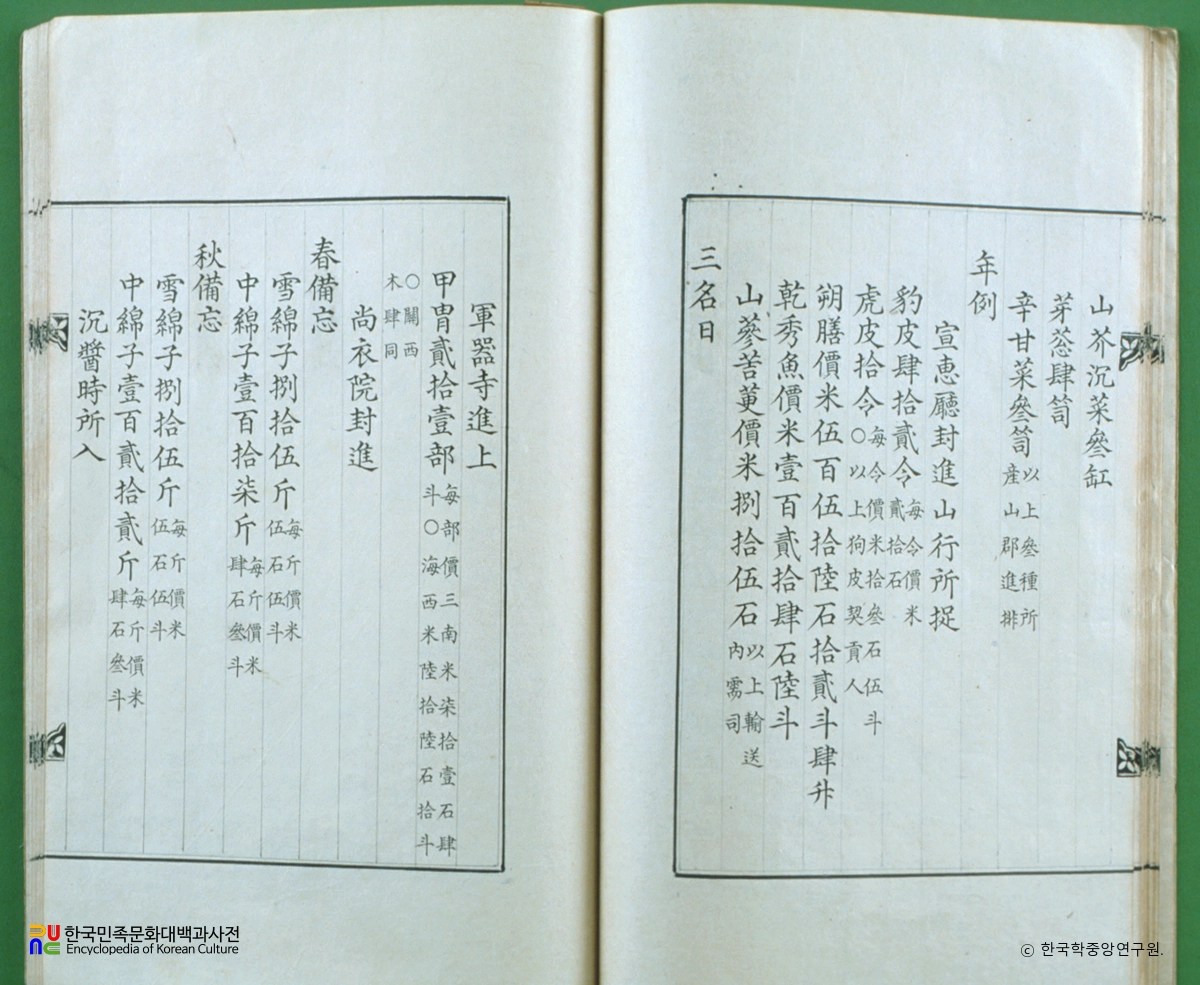 山芥沉菜叄缸
芽葱肆笥
辛甘菜叄笥 以上叄種所産山郡進排
年例
宣惠廳封進山行所捉
豹皮肆拾貳令 每令價米貳拾石
虎皮拾令 每令價米拾叄石伍斗○以上狗皮契貢人
朔膳價米伍百伍拾陸石拾貳斗肆升
乾秀魚價米壹百貳拾肆石陸斗
山蔘苦茰價米捌拾伍石 以上輸送內需司
三名日
軍器寺進上
甲胄貳拾壹部 每部價三南米柒拾壹石肆斗○海西米陸拾陸石拾斗
○關西木肆同
尚衣院封進
春備忘
雪綿子捌拾伍斤 每斤價米伍石伍斗
中綿子壹百拾柒斤 每斤價米肆石叄斗
秋備忘
雪綿子捌拾伍斤 每斤價米伍石伍斗
中綿子壹百貳拾貳斤 每斤價米肆石叄斗
沉醬時所入
한국민족문화대백과사전
Encyclopedia of Korean Culture
ⓒ 한국학중앙연구원.